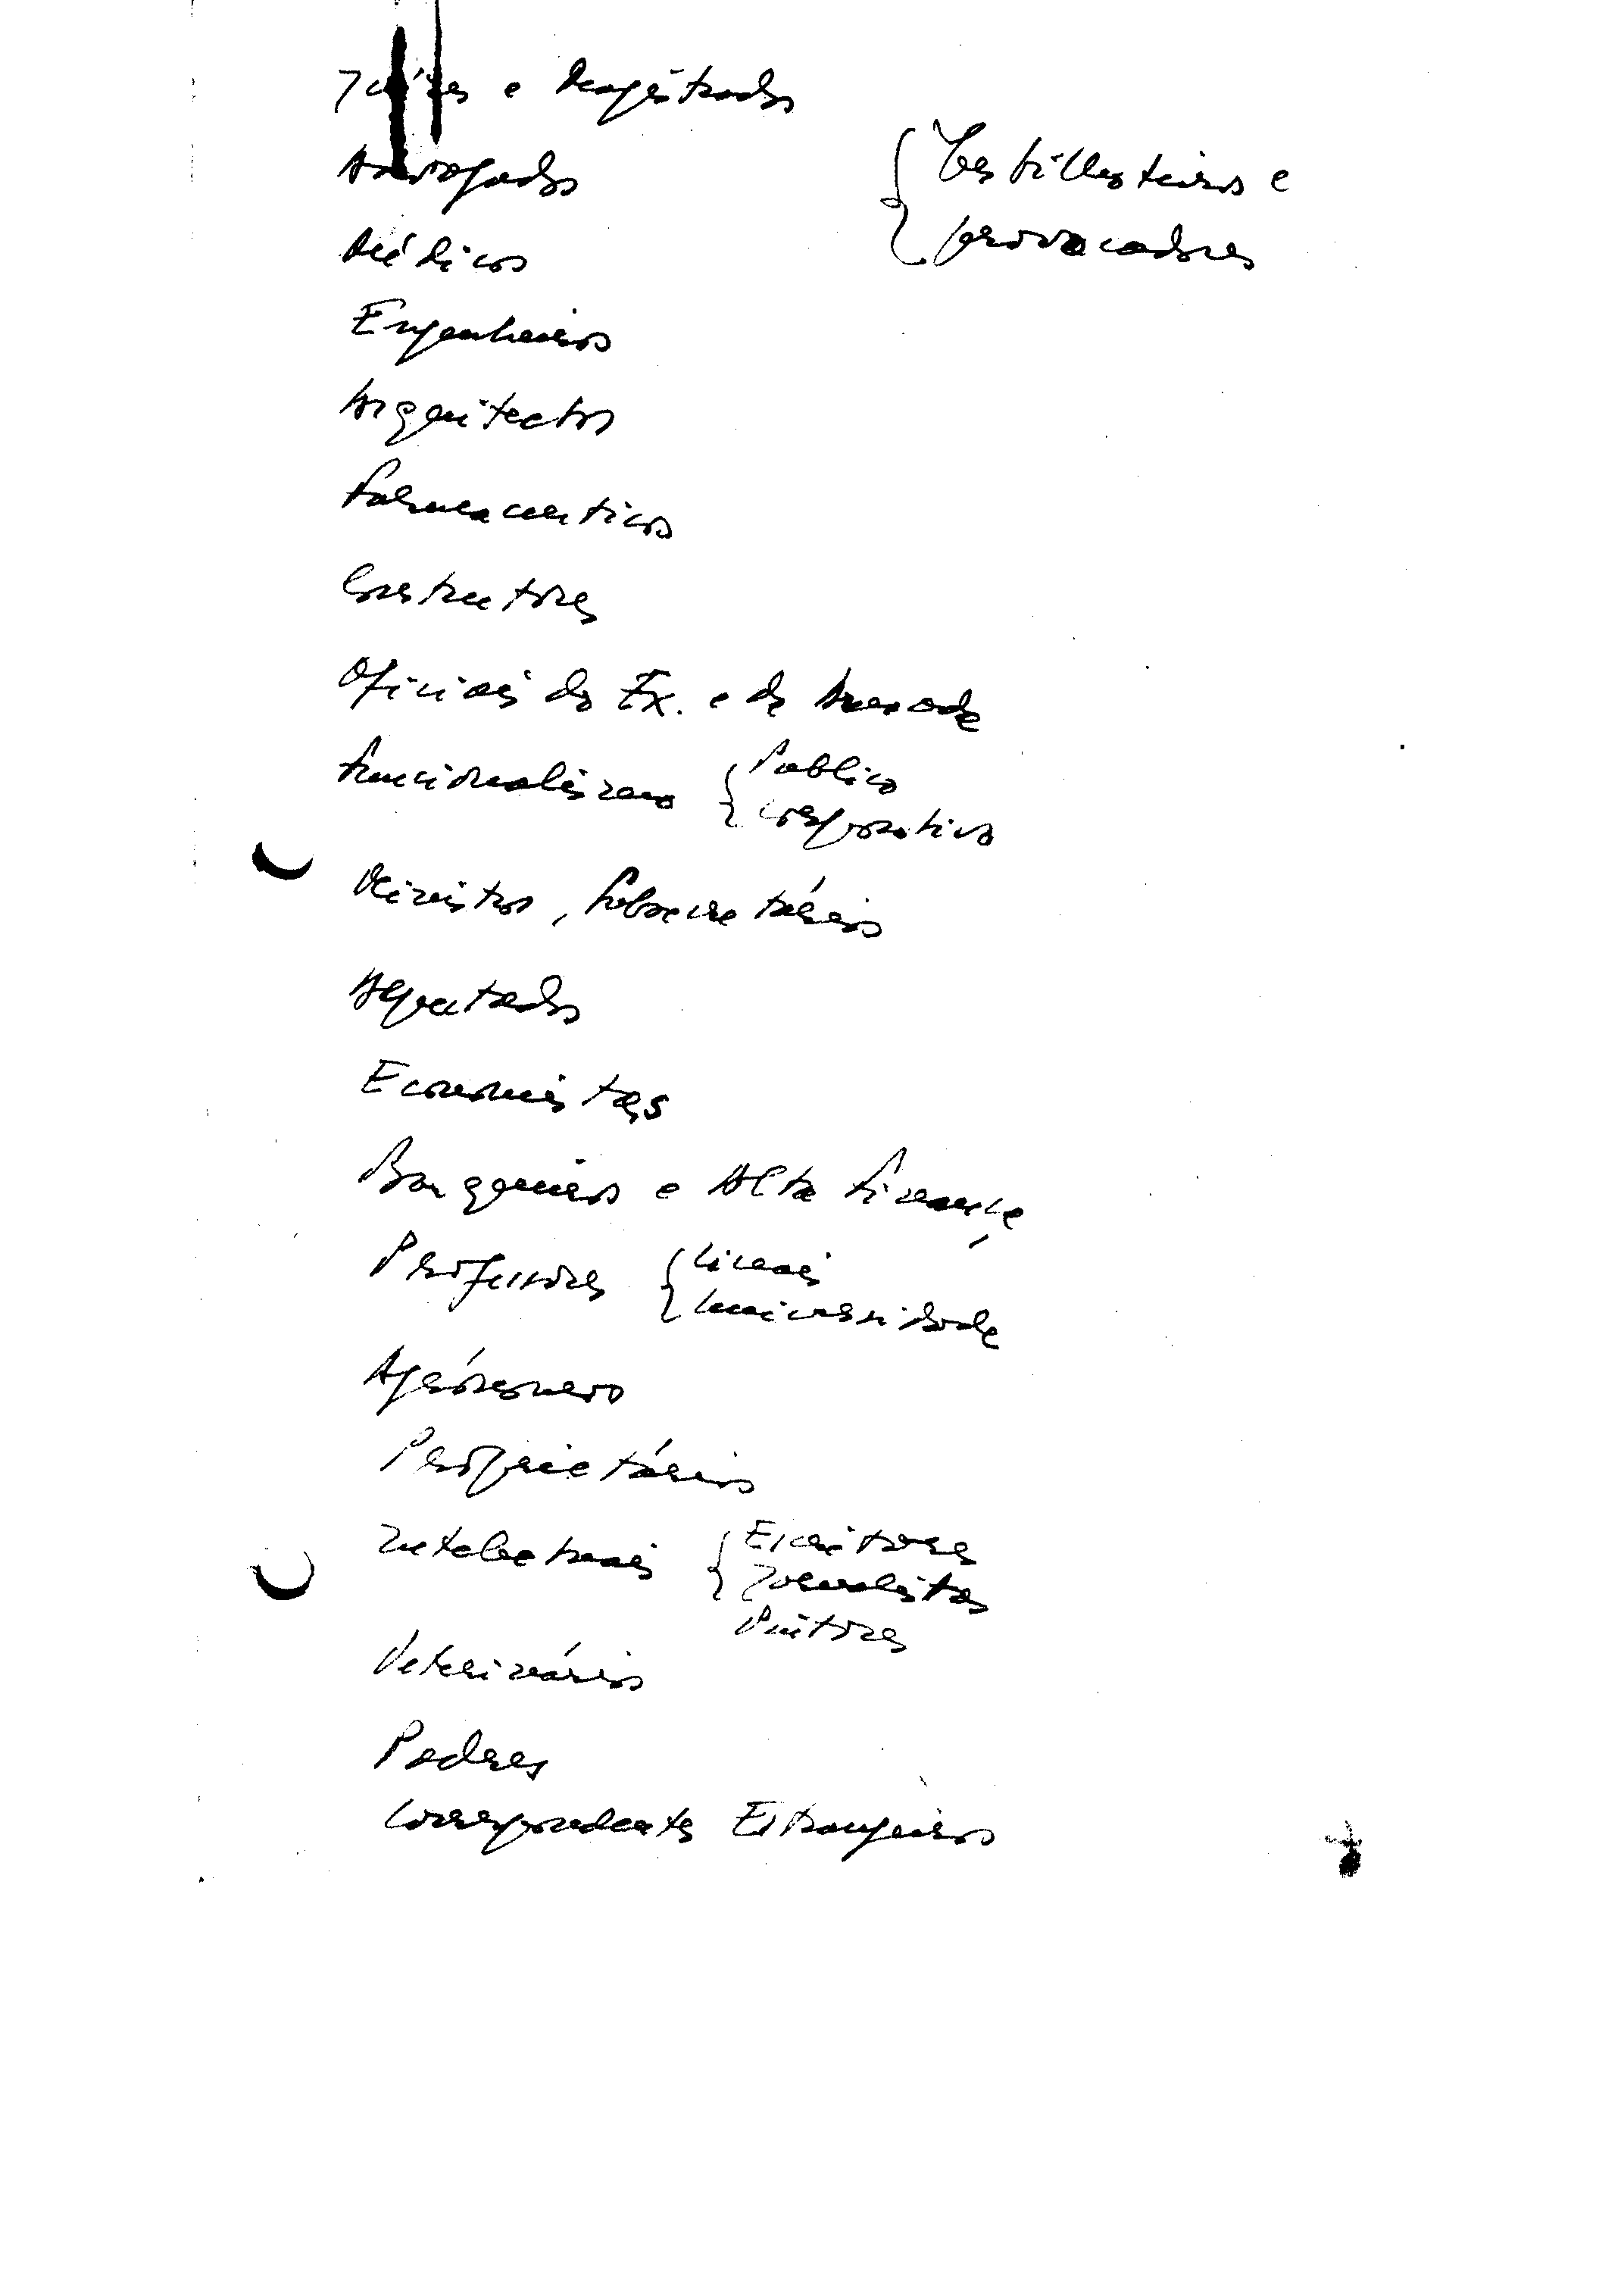 Juízes e Magistrados
Advogados
Médicos
Engenheiros
Arquitectos
Farmaceuticos
Construtores
Oficiais do Ex. e da Armada
Funcionalismo { Publico
corporativo
Ministros, Subsecretários
Deputados
Economistas
Banqueiros e Alta Finança
Professores { Liceais
Universidade
Agrónomo
Proprietários
Intelectuais { Escritores
Jornalistas
Pintores
Veterinários
Padres
Correspondentes Estrangeiros
{
e
provocadores